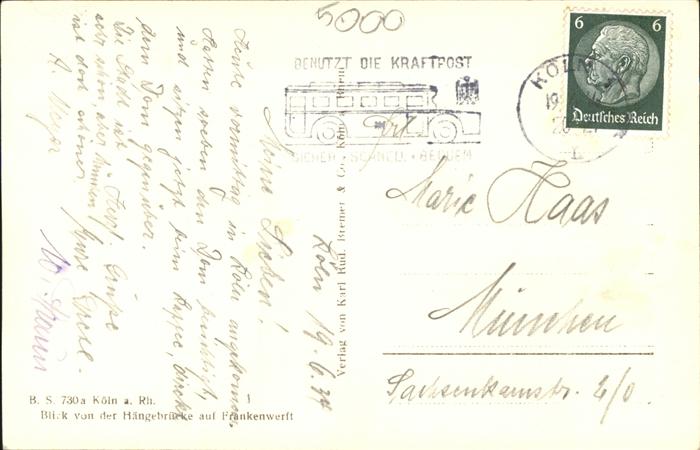 5000
Köln 19.6.34
Meine Lieben!
Heute vormittag in Köln angekommen.
Hatten soeben den Dom besichtigt,
und sitzen jetzt beim Kaffee, direkt
dem Dom gegenüber.
Die Stadt ist
sehr schön aber München
ist doch schöner.
Herzl. Grüße
Eure
A. Meyer
B. S. 730a Köln a. Rh. 1
Blick von der Hängebrücke auf Frankenwerft
Verlag von Karl Rud. Bremer & Co. Köln a. Rhein
BENUTZT DIE KRAFTPOST
SICHER · SCHNELL · BEQUEM
KÖLN
19
6 6
Deutsches Reich
Marie Haas
München
Sachsenkamstr. 2/0